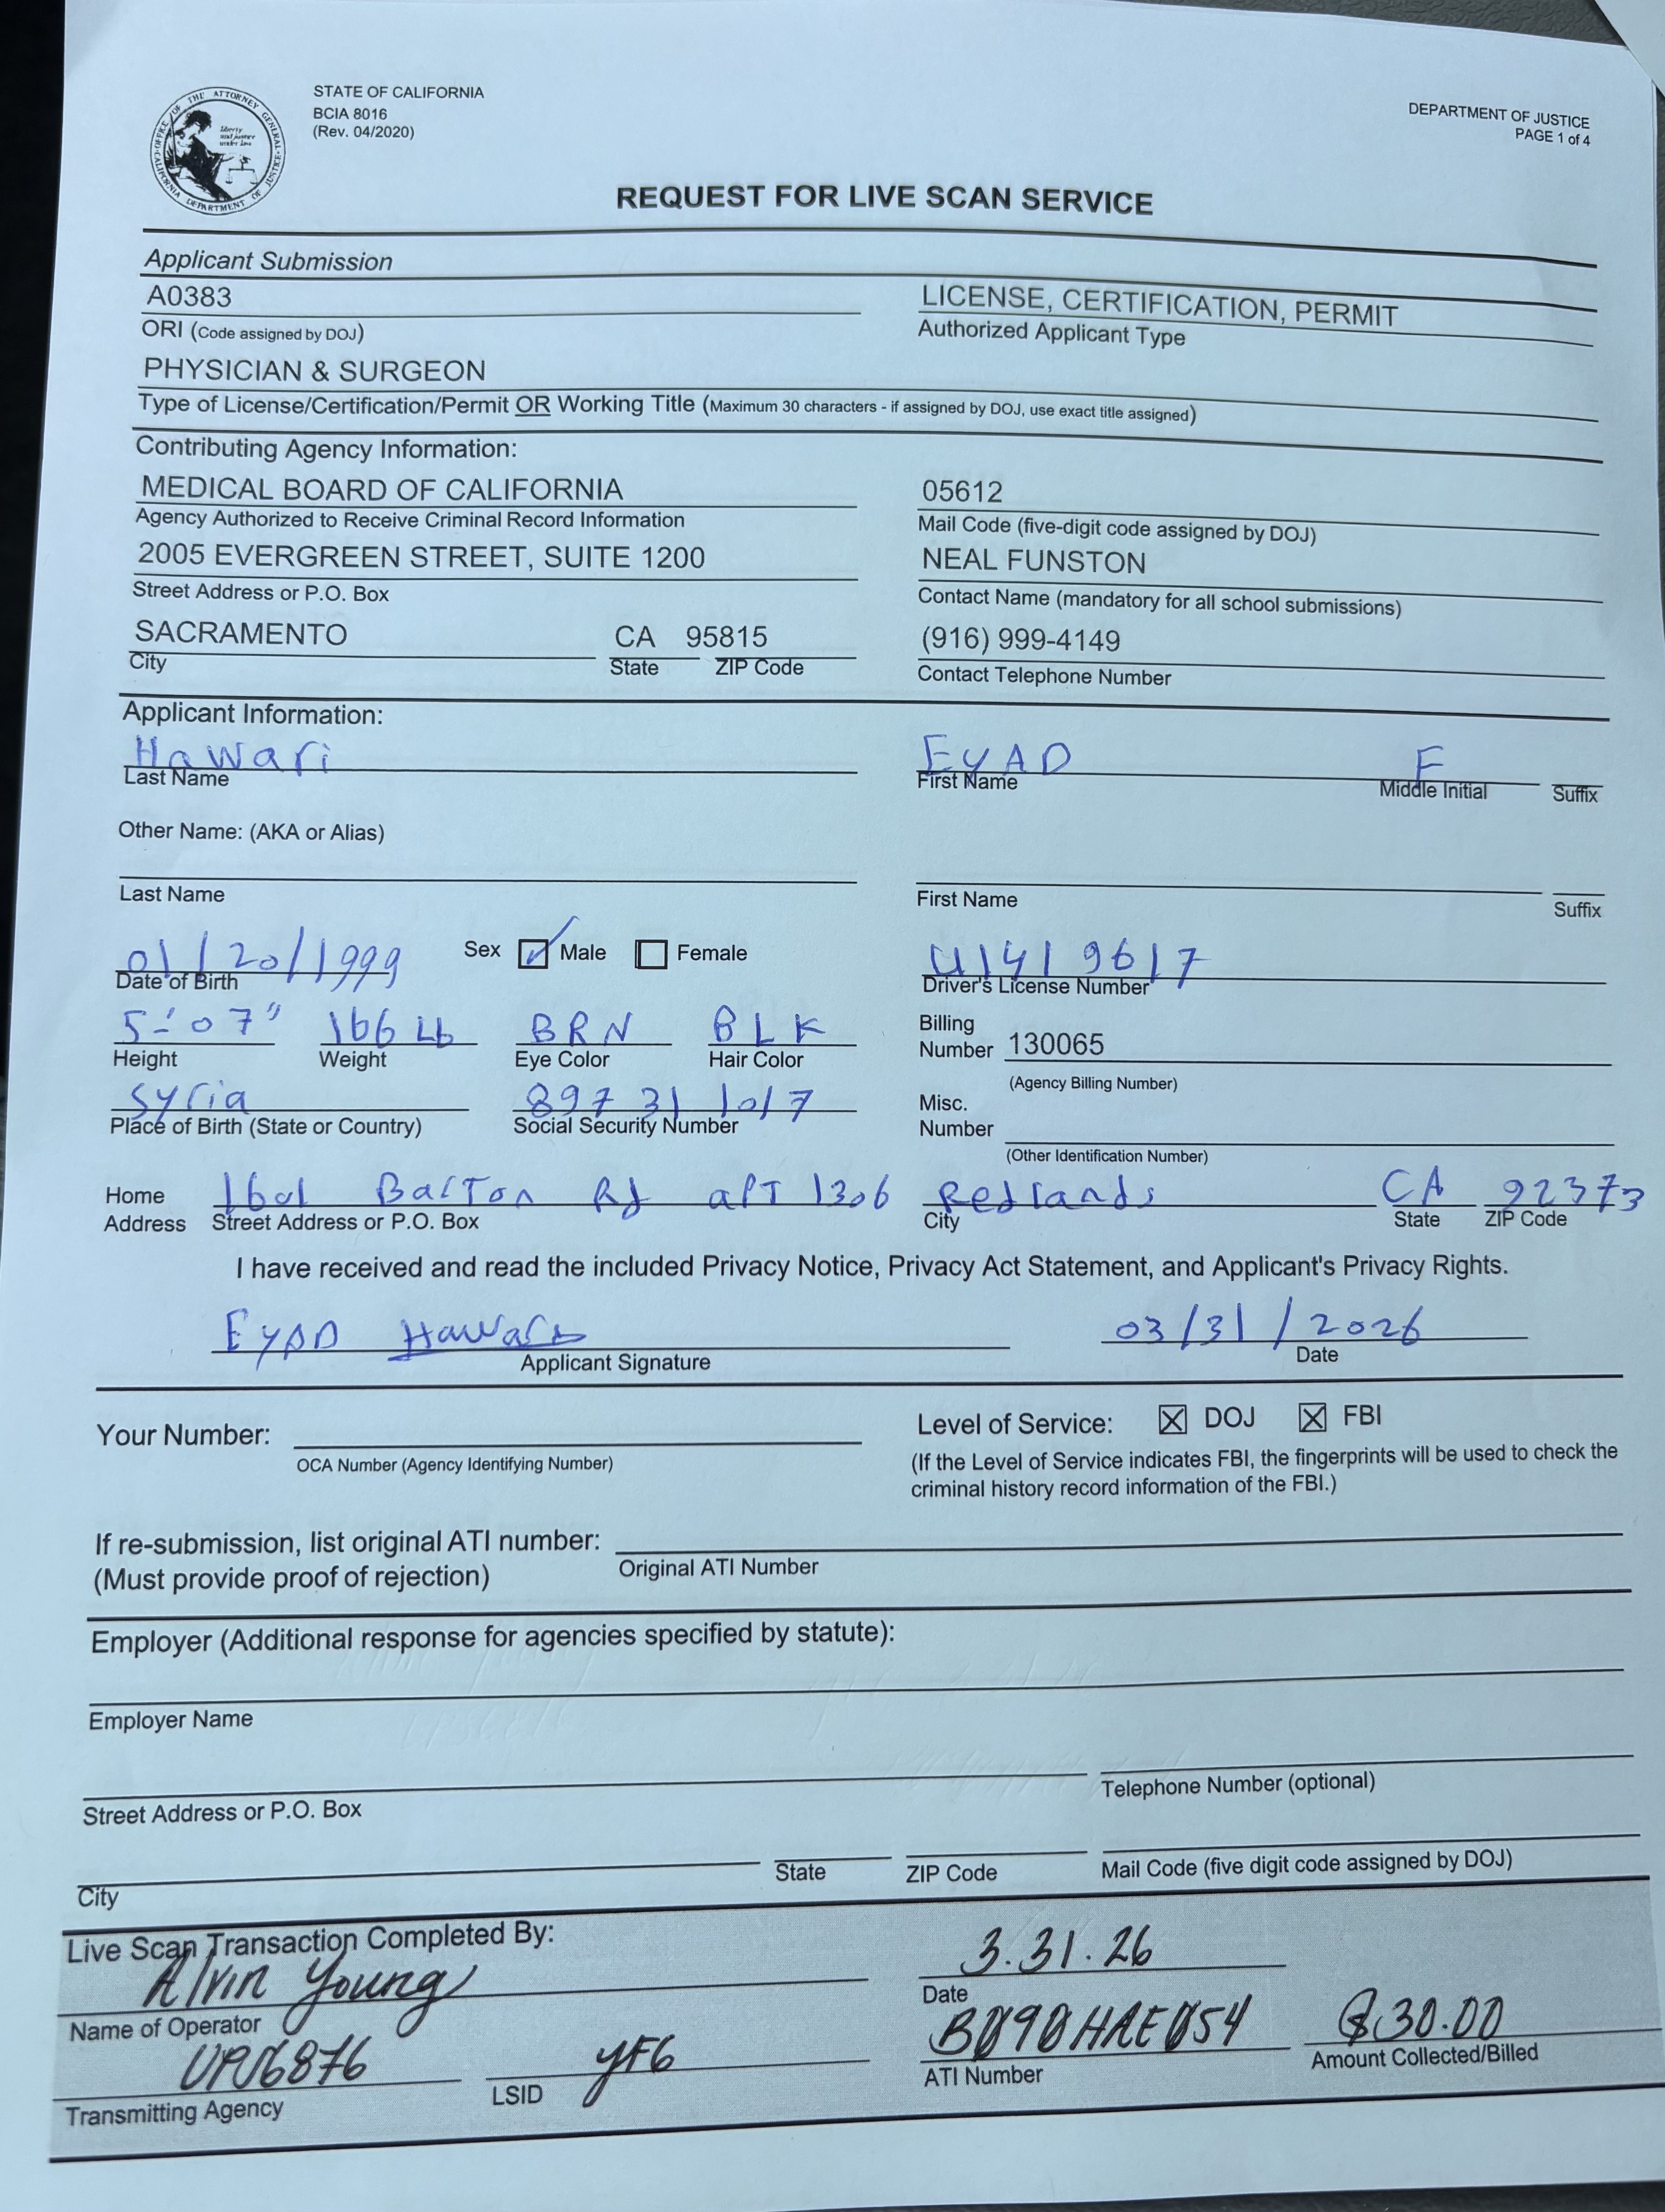 OFFICE OF THE ATTORNEY GENERAL
CALIFORNIA DEPARTMENT OF JUSTICE
Liberty and justice under law
STATE OF CALIFORNIA
BCIA 8016
(Rev. 04/2020)
DEPARTMENT OF JUSTICE
PAGE 1 of 4
REQUEST FOR LIVE SCAN SERVICE
Applicant Submission
A0383 LICENSE, CERTIFICATION, PERMIT
ORI (Code assigned by DOJ) Authorized Applicant Type
PHYSICIAN & SURGEON
Type of License/Certification/Permit OR Working Title (Maximum 30 characters - if assigned by DOJ, use exact title assigned)
Contributing Agency Information:
MEDICAL BOARD OF CALIFORNIA 05612
Agency Authorized to Receive Criminal Record Information Mail Code (five-digit code assigned by DOJ)
2005 EVERGREEN STREET, SUITE 1200 NEAL FUNSTON
Street Address or P.O. Box Contact Name (mandatory for all school submissions)
SACRAMENTO CA 95815 (916) 999-4149
City State ZIP Code Contact Telephone Number
Applicant Information:
Hawari EYAD F
Last Name First Name Middle Initial Suffix
Other Name: (AKA or Alias)
Last Name First Name Suffix
01/20/1999 Sex Male Female U1419617
Date of Birth Driver's License Number
5-'07" 166 Lb BRN BLK Billing Number 130065
Height Weight Eye Color Hair Color (Agency Billing Number)
Syria 897 31 1017 Misc. Number
Place of Birth (State or Country) Social Security Number (Other Identification Number)
Home Address 1601 Barton Rd apT 1306 Redlands CA 92373
Street Address or P.O. Box City State ZIP Code
I have received and read the included Privacy Notice, Privacy Act Statement, and Applicant's Privacy Rights.
EYAD Hawari 03/31/2026
Applicant Signature Date
Your Number: Level of Service: DOJ FBI
OCA Number (Agency Identifying Number) (If the Level of Service indicates FBI, the fingerprints will be used to check the
criminal history record information of the FBI.)
If re-submission, list original ATI number:
(Must provide proof of rejection) Original ATI Number
Employer (Additional response for agencies specified by statute):
Employer Name
Street Address or P.O. Box Telephone Number (optional)
City State ZIP Code Mail Code (five digit code assigned by DOJ)
Live Scan Transaction Completed By:
Alvin Young 3.31.26
Name of Operator Date
YF6 B090HAE054 $30.00
Transmitting Agency LSID ATI Number Amount Collected/Billed